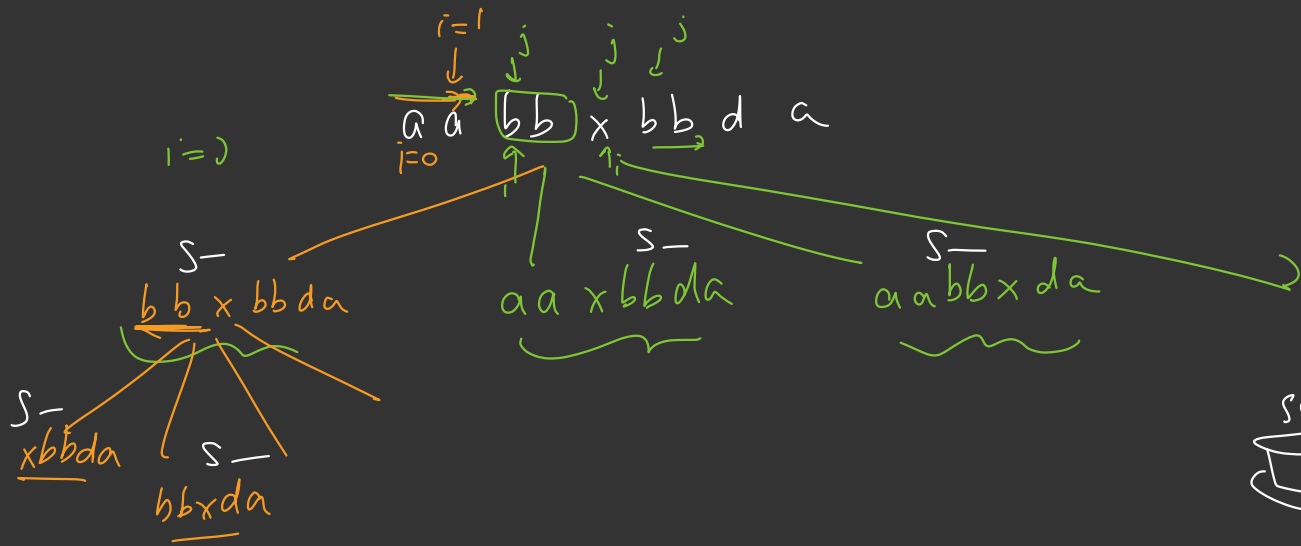 i=1 j j j
a a bb x bb d a
i=0 i=0
i i
S S S
bb x bbda aa xbbda aabbx da
S
xbbda S
bbxda